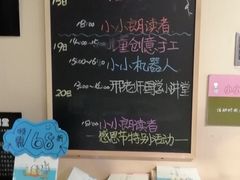 18:00 小小朗读者
19日 14:00-15:00 儿童创意手工
15:00-16:10 小小机器人
20日 邢老师国学小讲堂
18:00 小小朗读者
感恩节特别活动
168